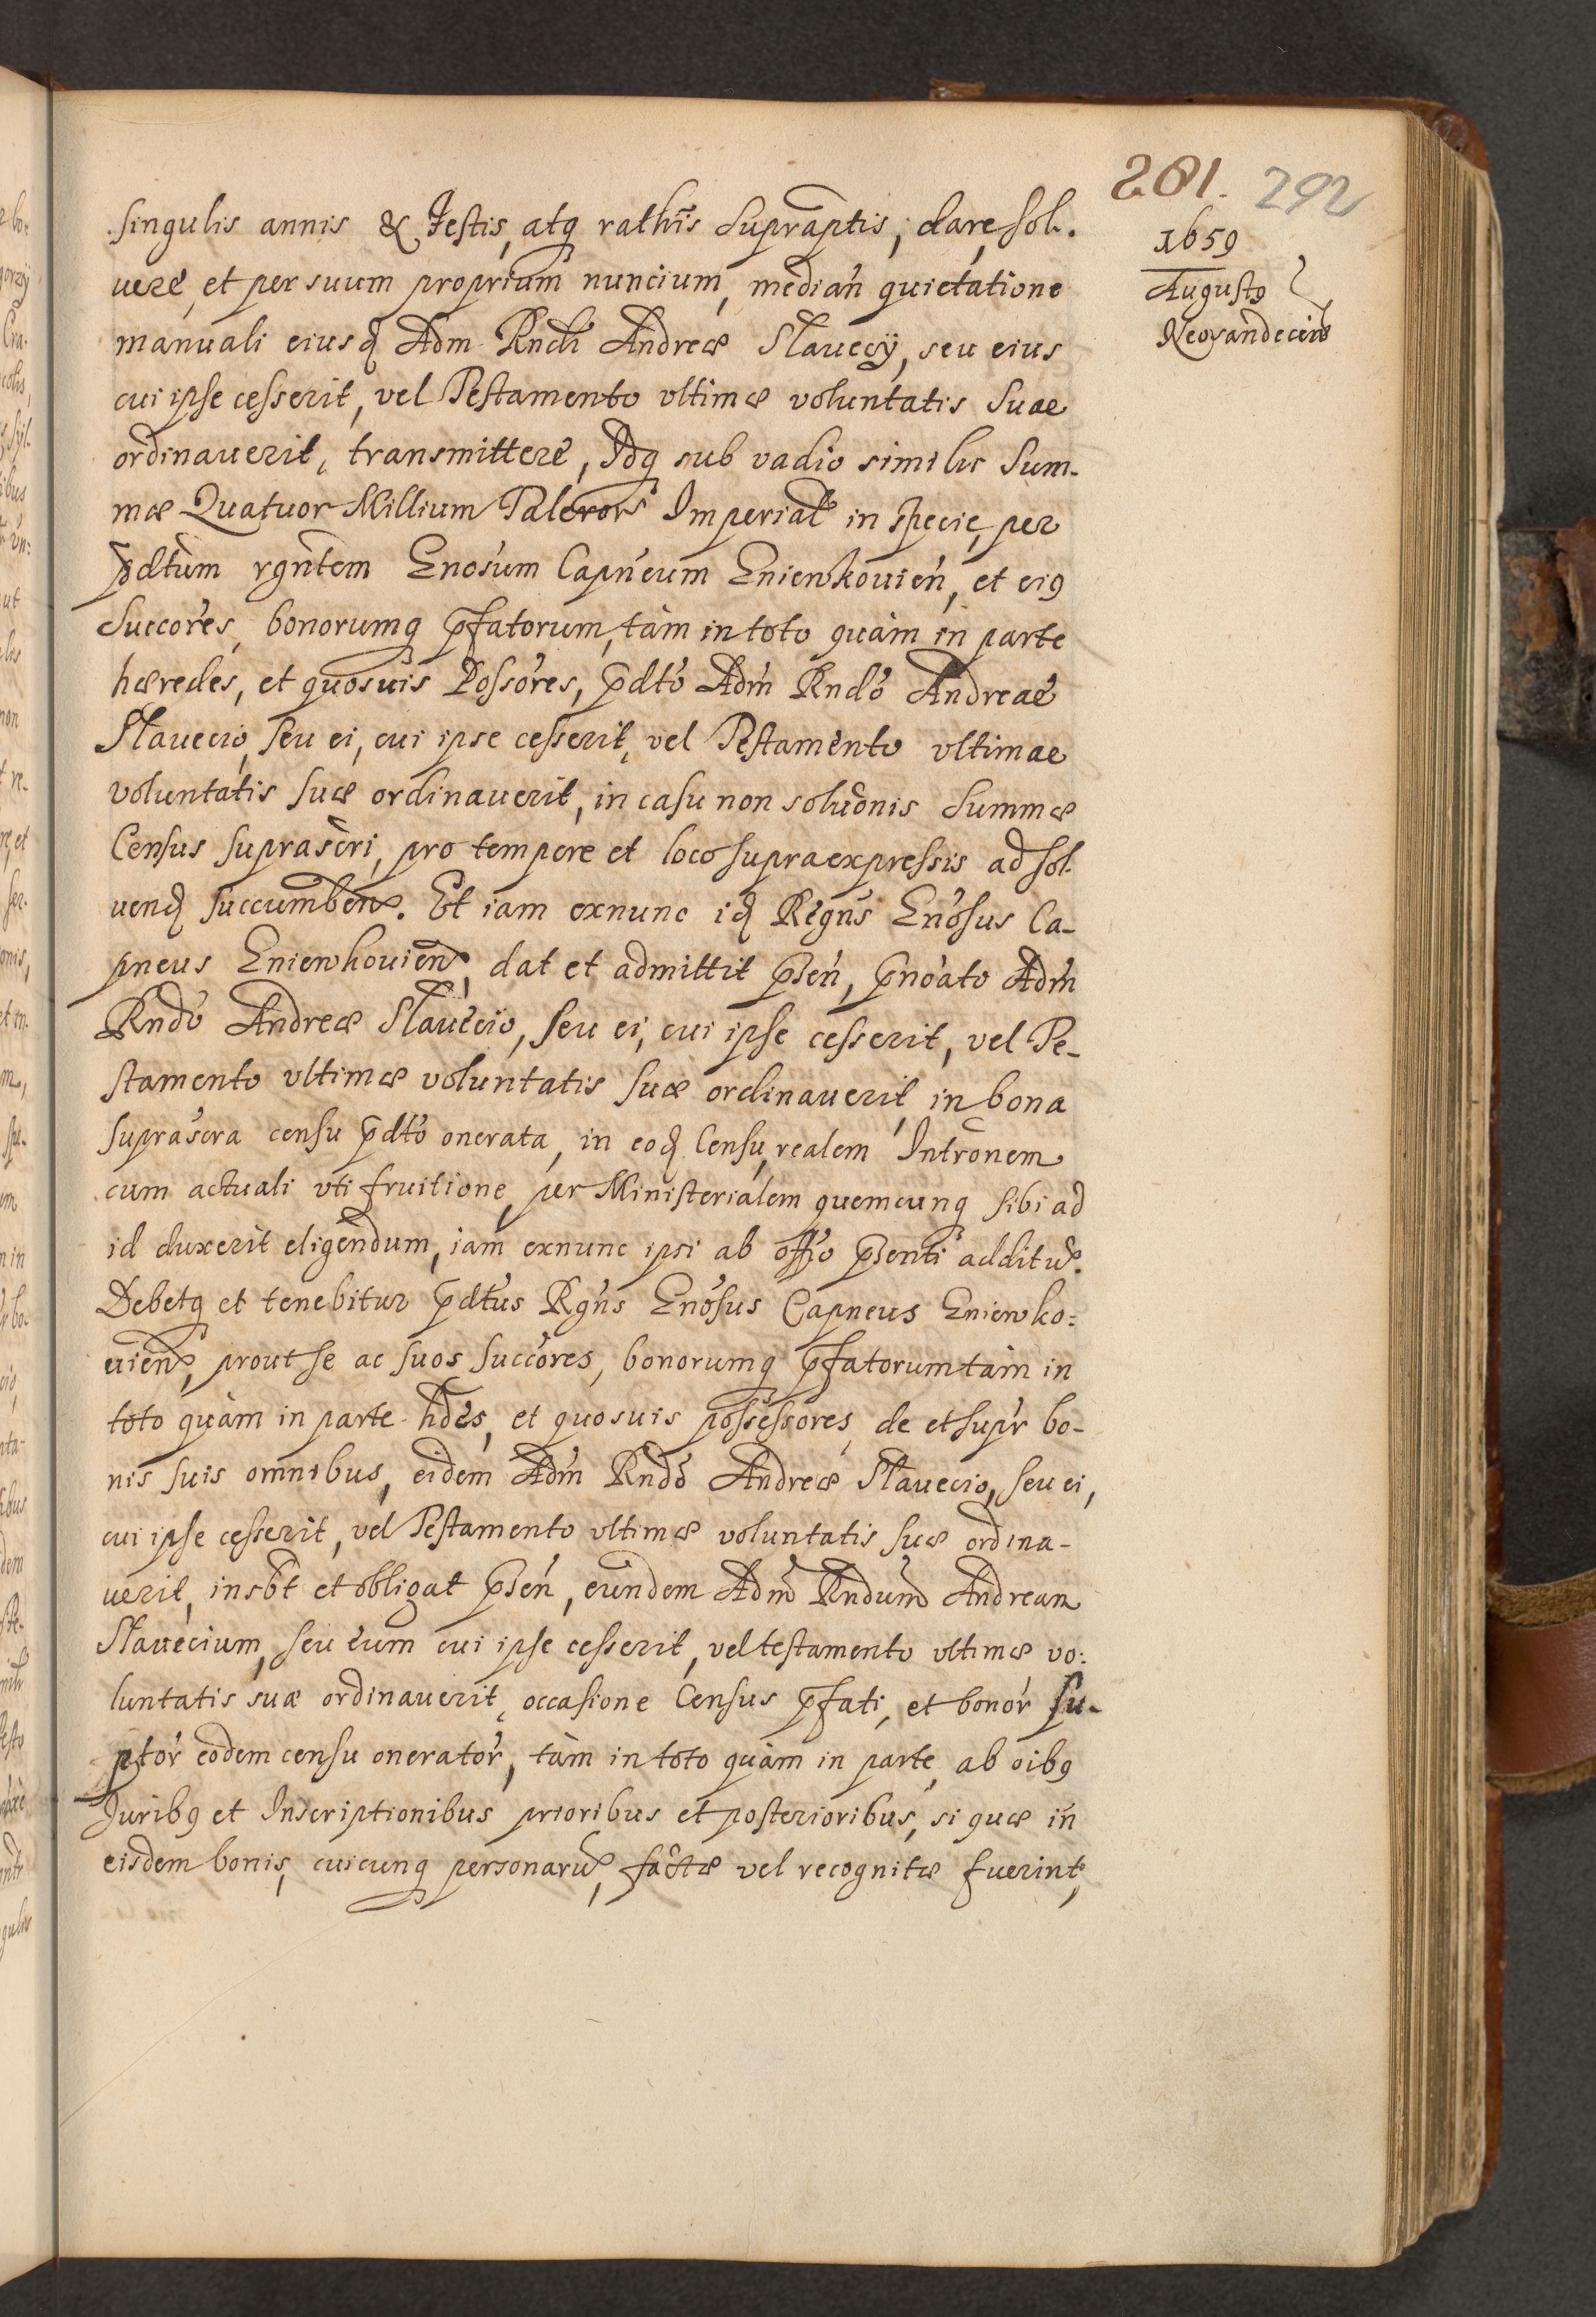 281. 292
1659
Augusto
Neosandecens
singulis annis & Festis, atq rathis supraptis, dare, sol.
uere, et per suum proprium nuncium, median quietatione
manuali eiusd Adm Rndi Andreæ Slauecÿ, seu eius
cui ipse cesserit, vel Testamento vltimæ voluntatis suae
ordinauerit, transmittere, Idq sub vadio similis sum-
mæ Quatuor Millium Taleror Imperial in specie, per
pdtum rgntem Gnosum Capneum Gniewkouien, et eig
succores, bonorumq pfatorum, tàm in toto quàm in parte
hæredes, et quosuis Possores, pdto Adm Rndo Andreae
Slauecio, seu ei, cui ipse cesserit, vel Testamento vltimae
voluntatis suæ ordinauerit, in casu non soluonis summæ
Census suprascri, pro tempore et loco supraexpressis ad sol-
uend succumben. Et iam exnunc id Regns Gnosus Ca-
pneus Gniewkouien, dat et admittit psen, pnoato Adm
Rndo Andreæ Slauecio, seu ei, cui ipse cesserit, vel Te-
stamento vltimæ voluntatis suæ ordinauerit, in bona
suprascra censu pdto onerata, in eod Censu, realem Intronem
cum actuali vti fruitione, per Ministerialem quemcunq sibi ad
id duxerit eligendum, iam exnunc ipsi ab offo psenti additu.
Debetq et tenebitur pdtus Rgns Gnosus Capneus Gniewko=
uien, prout se ac suos succores, bonorumq pfatorum tàm in
toto quàm in parte hdes, et quosuis possessores, de et supr bo-
nis suis omnibus, eidem Adm Rndo Andreæ Slauecio, seu ei,
cui ipse cesserit, vel Testamento vltimæ voluntatis suæ ordina-
uerit, insbt et obligat psen, eundem Adm Rndum Andream
Slauecium, seu eum cui ipse cesserit, vel testamento vltimæ vo:
luntatis suæ ordinauerit, occasione Census pfati, et bonor su-
ptor eodem censu onerator, tàm in toto quàm in parte, ab oibg
Juribg et Inscriptionibus prioribus et posterioribus, si quæ in
eisdem bonis, cuicunq personaru, factæ vel recognitæ fuerint,